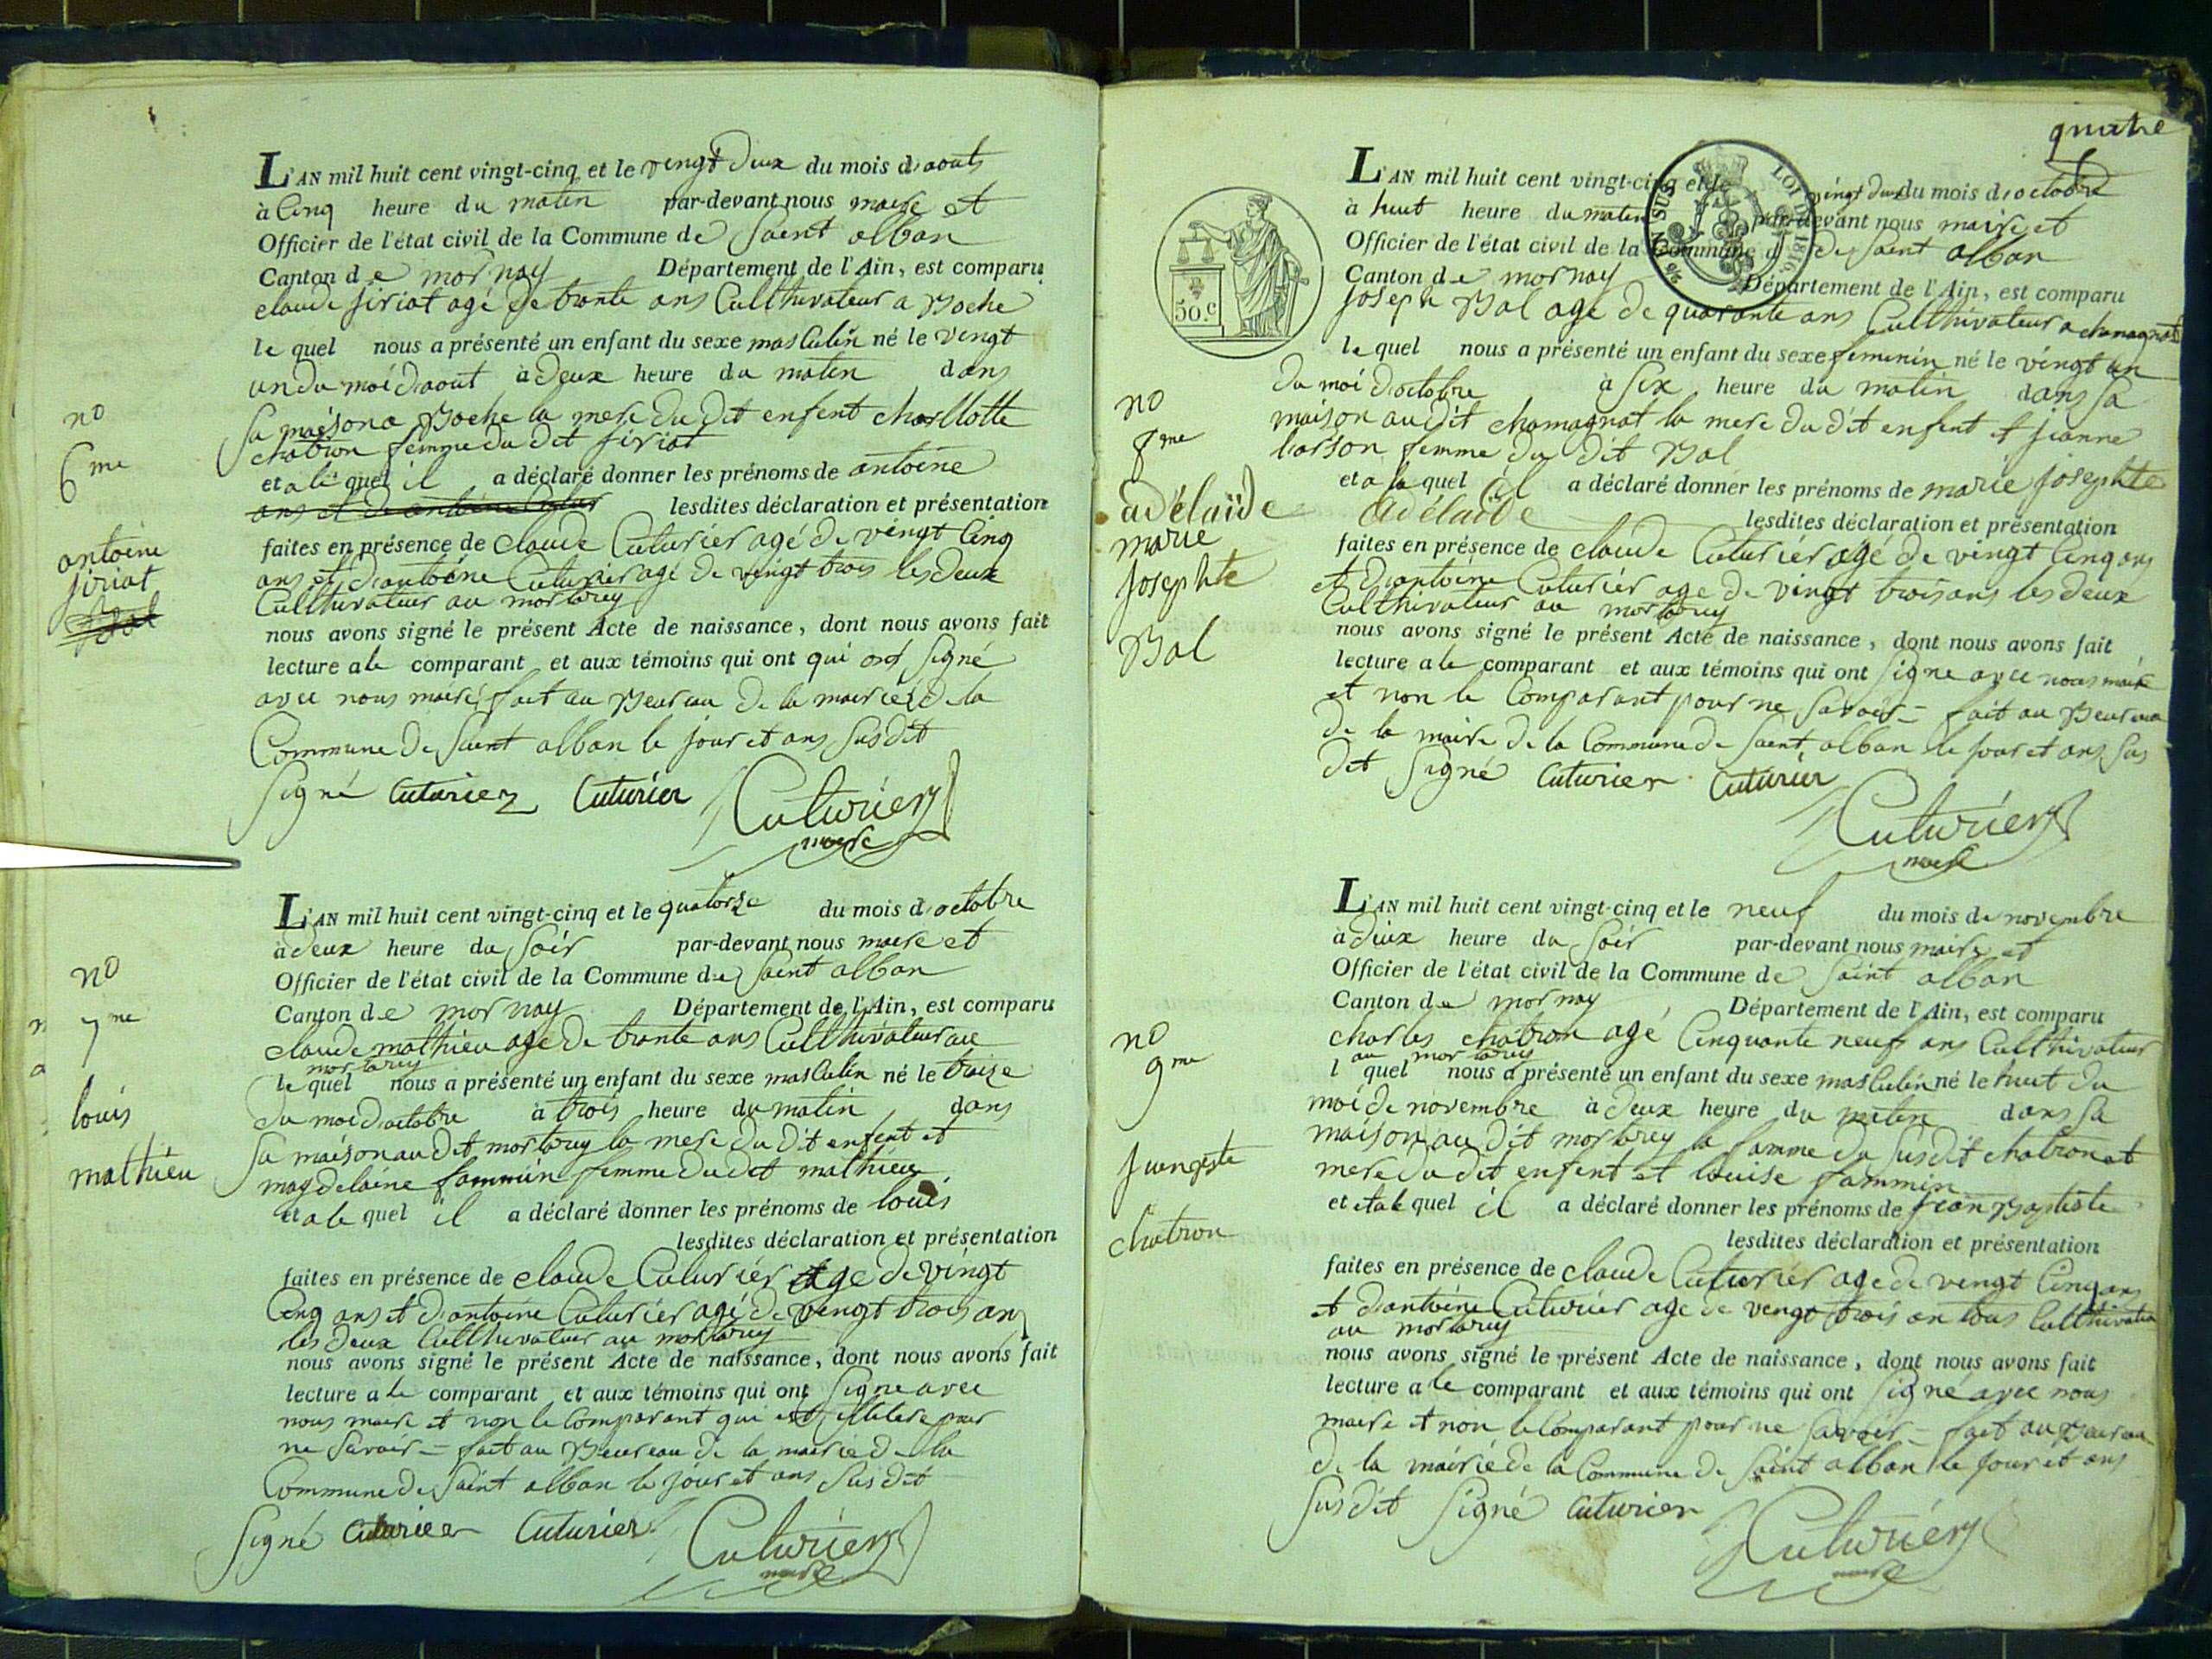 L'AN mil huit cent vingt-cinq et le vingt deux du mois d'aouts
à Cinq heure du matin par-devant nous maire et
Officier de l'état civil de la Commune de Saint alban
Canton de mornay Département de l'Ain, est comparu
claude firiat agé de trante ans Culthivateur a Boche
le quel nous a présenté un enfant du sexe masCulin né le vingt
un du moi d'aout à deux heure du matin dans
Sa maison a Boche la mere du dit enfent charllotte
chatron femme du dit firiat
et a le quel il a déclaré donner les prénoms de antoine
lesdites déclaration et présentation
faites en présence de claude Cuturier agé de vingt Cinq
ans et d'antoine Cuturier agé de vingt trois les deux
Culthivateur au mortarey
nous avons signé le présent Acte de naissance, dont nous avons fait
lecture a le comparant et aux témoins qui ont qui ont Signé
avec nous maire fait au Beureau de la mairie de la
Commune de Saint alban le jour et ans Susdit
Signé Cuturier Cuturier Cuturier
maire
no
6me
antoine
firiat
L'AN mil huit cent vingt-cinq et le quatorze du mois d'octobre
à deux heure du Soir par-devant nous maire et
Officier de l'état civil de la Commune de Saint alban
Canton de mornay Département de l'Ain, est comparu
claude mathieu age de trante ans Culthivateur au
mortarey
le quel nous a présenté un enfant du sexe masCulin né le traize
du moi d'octobre à trois heure du matin dans
Sa maison au dit mortarey la mere du dit enfent et
magdelaine fammin femme du dit mathieu
et a le quel il a déclaré donner les prénoms de louis
lesdites déclaration et présentation
faites en présence de claude Cuturier age de vingt
Cinq ans et d'antoine Cuturier agé de vengt trois ans
les deux Culthivateur au mortarey
nous avons signé le présent Acte de naissance, dont nous avons fait
lecture a le comparant et aux témoins qui ont Signe avec
nous maire et non le Comparant qui est illitere pour
ne Savoir = fait au Beureau de la mairie de la
Commune de Saint alban le jour et ans Susdit
Signé Cuturier Cuturier Cuturier
maire
no
7me
louis
mathieu
quatre
L'AN mil huit cent vingt-cinq et le vingt deux du mois d'octobre
à huit heure du matin par-devant nous maire et
Officier de l'état civil de la Commune d de Saint alban
Canton de mornay Département de l'Ain, est comparu
Joseph Bal age de quarante ans Culthivateur a chamagnat
le quel nous a présenté un enfant du sexe feminin né le vingt un
du moi d'octobre à Six heure du matin dans Sa
maison au dit chamagnat la mere du dit enfent et jeanne
larson femme du dit Bal
et a le quel il a déclaré donner les prénoms de marie Josephte
adélaïde lesdites déclaration et présentation
faites en présence de claude Cuturier agé de vingt Cinq ans
et d'antoine Cuturier age de vingt trois ans les deux
Culthivateur au mortarey
nous avons signé le présent Acte de naissance, dont nous avons fait
lecture a le comparant et aux témoins qui ont Signe avec nous maire
et non le Comparant pour ne Savoir = fait au Beureau
de la maire de la Commune de Saint alban le jour et ans Sus
dit Signé Cuturier Cuturier Cuturier
maire
50.c
LOI DE 1816
EN SUS
no
8me
adélaïde
marie
Josephte
Bal
L'AN mil huit cent vingt-cinq et le neuf du mois de novembre
à deux heure du Soir par-devant nous maire et
Officier de l'état civil de la Commune de Saint alban
Canton de mornay Département de l'Ain, est comparu
charles chatron agé Cinquante neuf ans Culthivateur
au mortarey
l quel nous a présenté un enfant du sexe masCulin né le huit du
moi de novembre à deux heure du matin dans Sa
maison au dit mortarey la famme du Susdit chatron et
mere du dit enfent et louise fammin
et et a le quel il a déclaré donner les prénoms de jean Baptiste
lesdites déclaration et présentation
faites en présence de claude Cuturier age de vengt Cinq ans
et d'antoine Cuturier age de vengt trois an tous Culthivateur
au mortarey
nous avons signé le présent Acte de naissance, dont nous avons fait
lecture a le comparant et aux témoins qui ont Signé avec nous
maire et non le Comparant pour ne Savoir = fait au Baureau
de la mairie de la Commune de Saint alban le jour et ans
Susdit Signé Cuturier Cuturier
maire
no
9me
chatron